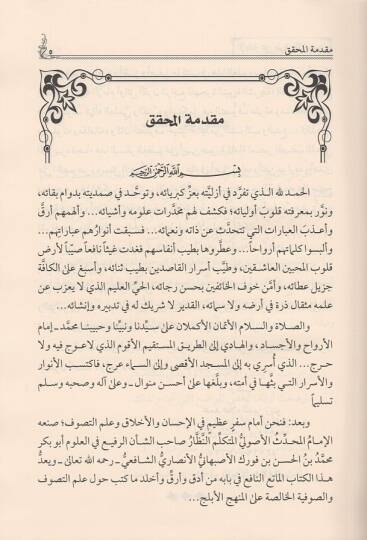 مقدمة المحقق
٥
مقدمة المحقق
بسم الله الرحمن الرحيم
الحمد لله الذي تفرَّد في أزليَّته بعزِّ كبريائه، وتوحَّد في صمديته بدوام بقائه،
ونوَّر بمعرفته قلوبَ أوليائه؛ فكشف لهم مخدَّرات علومه وأشيائه... وألهمهم أرقَّ
وأعذبَ العبارات التي تتحدَّث عن ذاته ونعمائه... فسبقت أنوارُهم عباراتِهم...
وألبسوا كلماتهم أرواحاً... وعطَّروها بطيب أنفاسهم فغدت غيثاً نافعاً صيِّباً لأرض
قلوب المحبين العاشقين، وطيَّب أسرار القاصدين بطيب ثنائه، وأسبغ على الكافَّة
جزيل عطائه، وأمَّن خوف الخائفين بحسن رجائه، الحيِّ العليم الذي لا يعزب عن
علمه مثقال ذرة في أرضه ولا سمائه، القدير لا شريك له في تدبيره وإنشائه...
والصلاة والسلام الأتمَّان الأكملان على سيِّدنا ونبيِّنا وحبيبنا محمَّد ـ إمام
الأرواح والأجساد، والهادي إلى الطريق المستقيم الأقوم الذي لا عوج فيه ولا
حرج... الذي أُسري به إلى المسجد الأقصى وإلى السماء عرج، فاكتسب الأنوار
والأسرار التي بثَّها في أمته، وبلَّغها على أحسن منوال ـ وعلى آله وصحبه وسلم
تسليماً
وبعد: فنحن أمام سفرٍ عظيمٍ في الإحسان والأخلاق وعلم التصوف؛ صنعه
الإمامُ المحدِّثُ الأصوليُّ المتكلِّم النَّظَّارُ صاحب الشأن الرفيع في العلوم أبو بكر
محمَّد بنُ الحسن بن فورك الأصبهانيُّ الأنصاريُّ الشافعيُّ ـ رحمه الله تعالى ـ ويعدُّ
هذا الكتاب الماتع النافع في بابه من أدق وأرقِّ وأخلد ما كتب حول علم التصوف
والصوفية الخالصة على المنهج الأبلج...